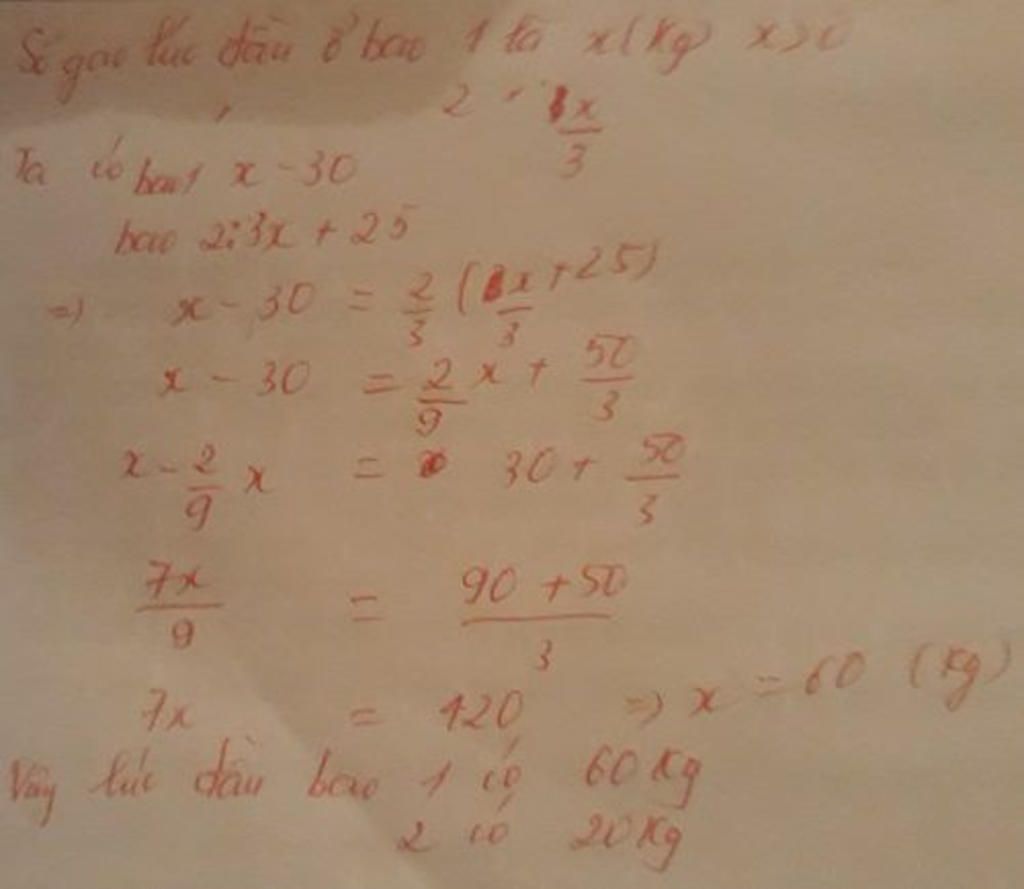 Số gạo lúc đầu ở bao 1 là x (kg) x > 0
2 " x/3
Ta có bao 1 x - 30
bao 2: 3x + 25
=> x - 30 = 2/3 (x/3 + 25)
x - 30 = 2/9 x + 50/3
x - 2/9 x = 30 + 50/3
7x/9 = 90 + 50/3
7x = 420 => x = 60 (kg)
Vậy lúc đầu bao 1 có 60 kg
2 có 20 kg